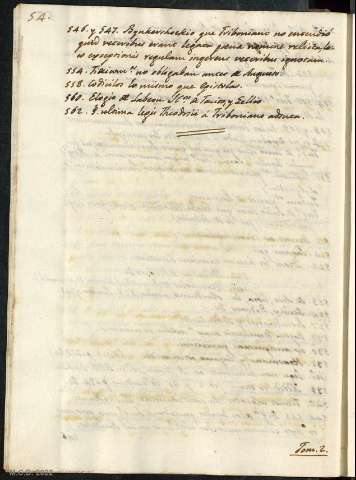 54.
546. y 547. Bynkershoekio que Triboniano no entendió
quid veteribus erant legata poenae nomine relicta, le
es exceptionis regulam ingerere veteribus ignotam.
554. Fideicom.s no obligaban antes de Augusto.
558. Codicilos lo mismo que Epistolas.
560. Elogio de Labeon de Tacito y Gellio
562. ultima legis Theodosii a Triboniano adonea.
Tom. 2.